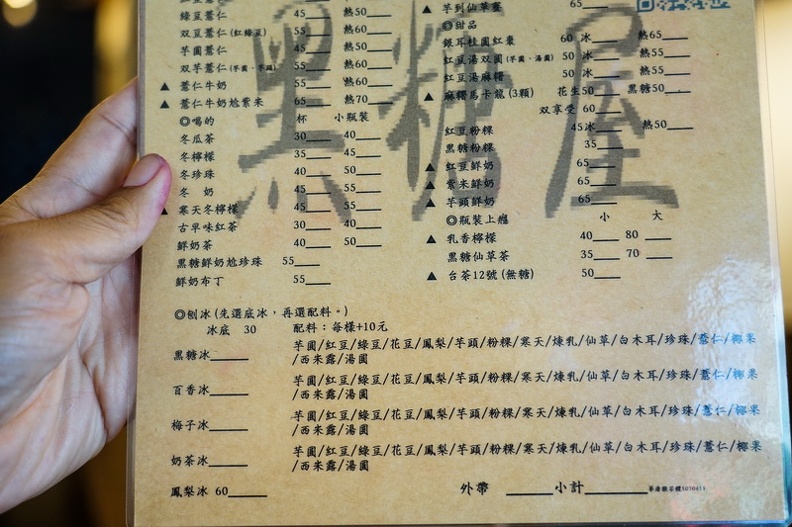 綠豆薏仁 45 熱50
双豆薏仁(紅綠豆) 55 熱60
芋圓薏仁 45 熱50
双芋薏仁(芋圓、芋頭) 55 熱60
▲ 薏仁牛奶 55 熱60
▲ 薏仁牛奶尬紫米 65 熱70
◎喝的 杯 小瓶裝
冬瓜茶 30 40
冬檸檬 35 45
冬珍珠 40 50
冬 奶 45 55
▲ 寒天冬檸檬 45 55
古早味紅茶 30 40
鮮奶茶 40 50
黑糖鮮奶尬珍珠 55
鮮奶布丁 55
▲ 芋到仙草蜜 65
◎甜品
銀耳桂圓紅棗 60 冰 熱65
紅豆湯双圓(芋圓、湯圓) 50 冰 熱55
紅豆湯麻糬 50 冰 熱55
▲ 麻糬馬卡龍(3顆) 花生50 黑糖50
双享受 60
紅豆粉粿 45冰 熱50
黑糖粉粿 35
▲ 紅豆鮮奶 65
▲ 紫米鮮奶 65
▲ 芋頭鮮奶 65
◎瓶裝上癮 小 大
▲ 乳香檸檬 40 80
黑糖仙草茶 35 70
▲ 台茶12號(無糖) 50
黑糖屋
◎刨冰(先選底冰，再選配料。)
冰底 30 配料：每樣+10元
黑糖冰 芋圓/紅豆/綠豆/花豆/鳳梨/芋頭/粉粿/寒天/煉乳/仙草/白木耳/珍珠/薏仁/椰果
/西米露/湯圓
百香冰 芋圓/紅豆/綠豆/花豆/鳳梨/芋頭/粉粿/寒天/煉乳/仙草/白木耳/珍珠/薏仁/椰果
/西米露/湯圓
梅子冰 芋圓/紅豆/綠豆/花豆/鳳梨/芋頭/粉粿/寒天/煉乳/仙草/白木耳/珍珠/薏仁/椰果
/西米露/湯圓
奶茶冰 芋圓/紅豆/綠豆/花豆/鳳梨/芋頭/粉粿/寒天/煉乳/仙草/白木耳/珍珠/薏仁/椰果
/西米露/湯圓
鳳梨冰 60 外帶 小計